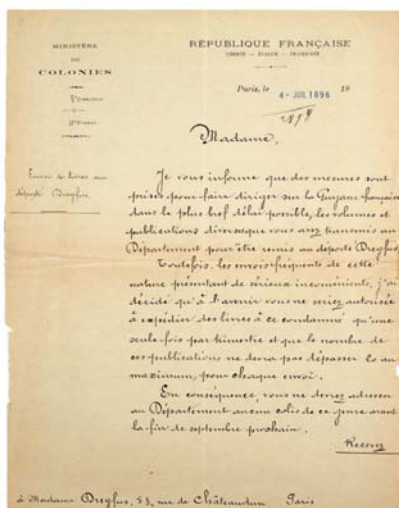 MINISTÈRE
DES
COLONIES
RÉPUBLIQUE FRANÇAISE
LIBERTÉ – ÉGALITÉ – FRATERNITÉ
Paris, le 4 - JUIL 1898 18
Madame,
Envoi de livres au
déporté Dreyfus
Je vous informe que des mesures sont
prises pour faire diriger sur la Guyane française
dans le plus bref délai possible, les volumes et
publications diverses que vous avez transmis au
Département pour être remis au déporté Dreyfus.
Toutefois, les envois fréquents de cette
nature présentant de sérieux inconvénients, j'ai
décidé qu'à l'avenir vous ne seriez autorisée
à expédier des livres à ce condamné qu'une
seule fois par trimestre et que le nombre de
ces publications ne devra pas dépasser 20 au
maximum, pour chaque envoi.
En conséquence, vous ne devrez adresser
au Département aucun colis de ce genre avant
la fin de septembre prochain.
Recevez
à Madame Dreyfus, 53, rue de Châteaudun Paris